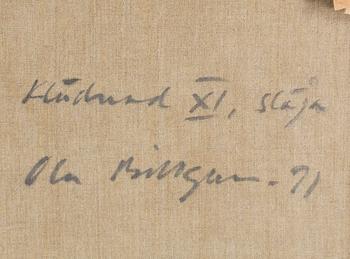 Klädnad XI, släja
Ola Billgren - 71